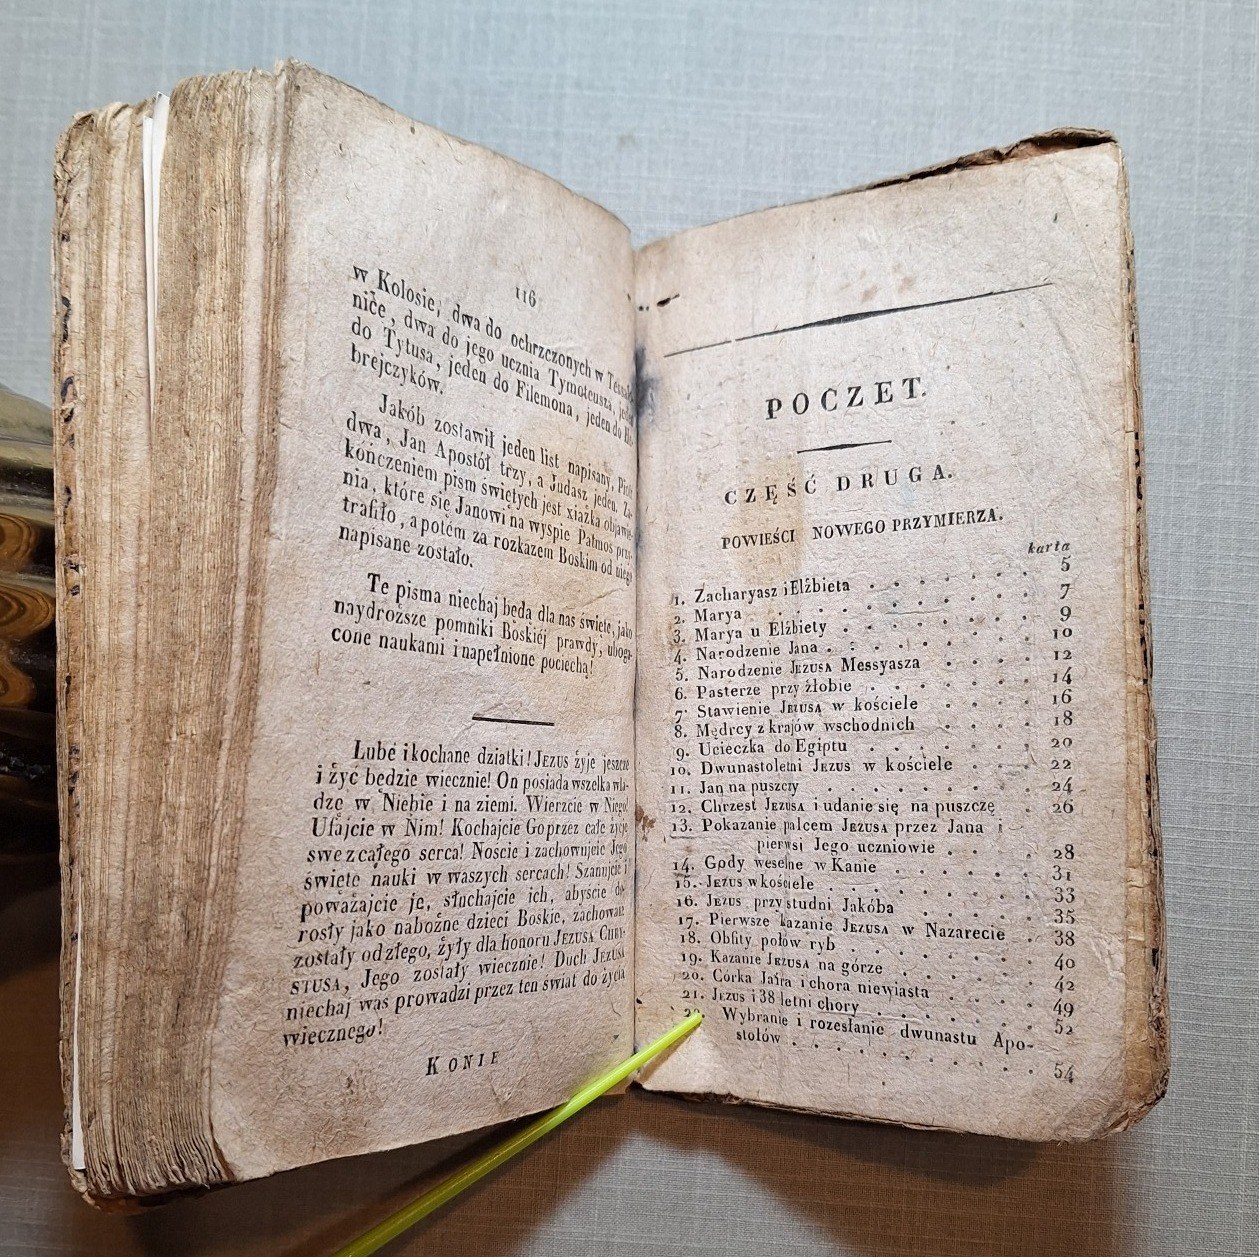 116
w Kolosie, dwa do ochrzczonych w
nice, dwa do jego ucznia Tymoteusza, jeden
do Tytusa, jeden do Filemona, jeden do He-
brejczyków.
Jakób zostawił jeden list napisany, Piotr
dwa, Jan Apostół trzy, a Judasz jeden. Za-
kończeniem pism świętych jest xiążka objawie-
nia, które się Janowi na wyspie Patmos przy-
trafiło, a potém za rozkazem Boskim od niego
napisane zostało.
Te pisma niechaj będą dla nas święte, jako
naydroższe pomniki Boskiéj prawdy, uboga-
cone naukami i napełnione pociechą!
Lubé i kochane dziatki! JEZUS żyje jeszcze
i żyć będzie wiecznie! On posiada wszelką wła-
dzę w Niebie i na ziemi. Wierzcie w Niego!
Ufajcie w Nim! Kochajcie Go przez całe życie
swe z całego serca! Noście i zachowujcie Jego
święte nauki w waszych sercach! Szanujcie i
poważajcie je, słuchajcie ich, abyście do-
rosły jako nabożne dzieci Boskie, zachowane
zostały od złego, żyły dla honoru JEZUSA CHRY-
STUSA, Jego zostały wiecznie! Duch JEZUSA
niechaj was prowadzi przez ten świat do życia
wiecznego!
KONIE
POCZET.
CZĘŚĆ DRUGA.
POWIEŚCI NOWEGO PRZYMIERZA.
karta
1. Zacharyasz i Elżbieta . . . . . . 5
2. Marya . . . . . . . . . 7
3. Marya u Elżbiety . . . . . . . 9
4. Narodzenie Jana . . . . . . . 10
5. Narodzenie JEZUSA Messyasza . . . . 12
6. Pasterze przy żłobie . . . . . . 14
7. Stawienie JEZUSA w kościele . . . . 16
8. Mędrcy z krajów wschodnich . . . . 18
9. Ucieczka do Egiptu . . . . . . 20
10. Dwunastoletni JEZUS w kościele . . . 22
11. Jan na puszczy . . . . . . . 24
12. Chrzest JEZUSA i udanie się na puszczę . 26
13. Pokazanie palcem JEZUSA przez Jana i
pierwsi Jego uczniowie . . . . 28
14. Gody weselne w Kanie . . . . . 31
15. JEZUS w kościele . . . . . . 33
16. JEZUS przy studni Jakóba . . . . 35
17. Pierwsze kazanie JEZUSA w Nazarecie . 38
18. Obfity połów ryb . . . . . . 40
19. Kazanie JEZUSA na górze . . . . 42
20. Córka Jaira i chora niewiasta . . . . 49
21. JEZUS i 38 letni chory . . . . . 52
22. Wybranie i rozesłanie dwunastu Apo-
stołów . . . . . . . . 54